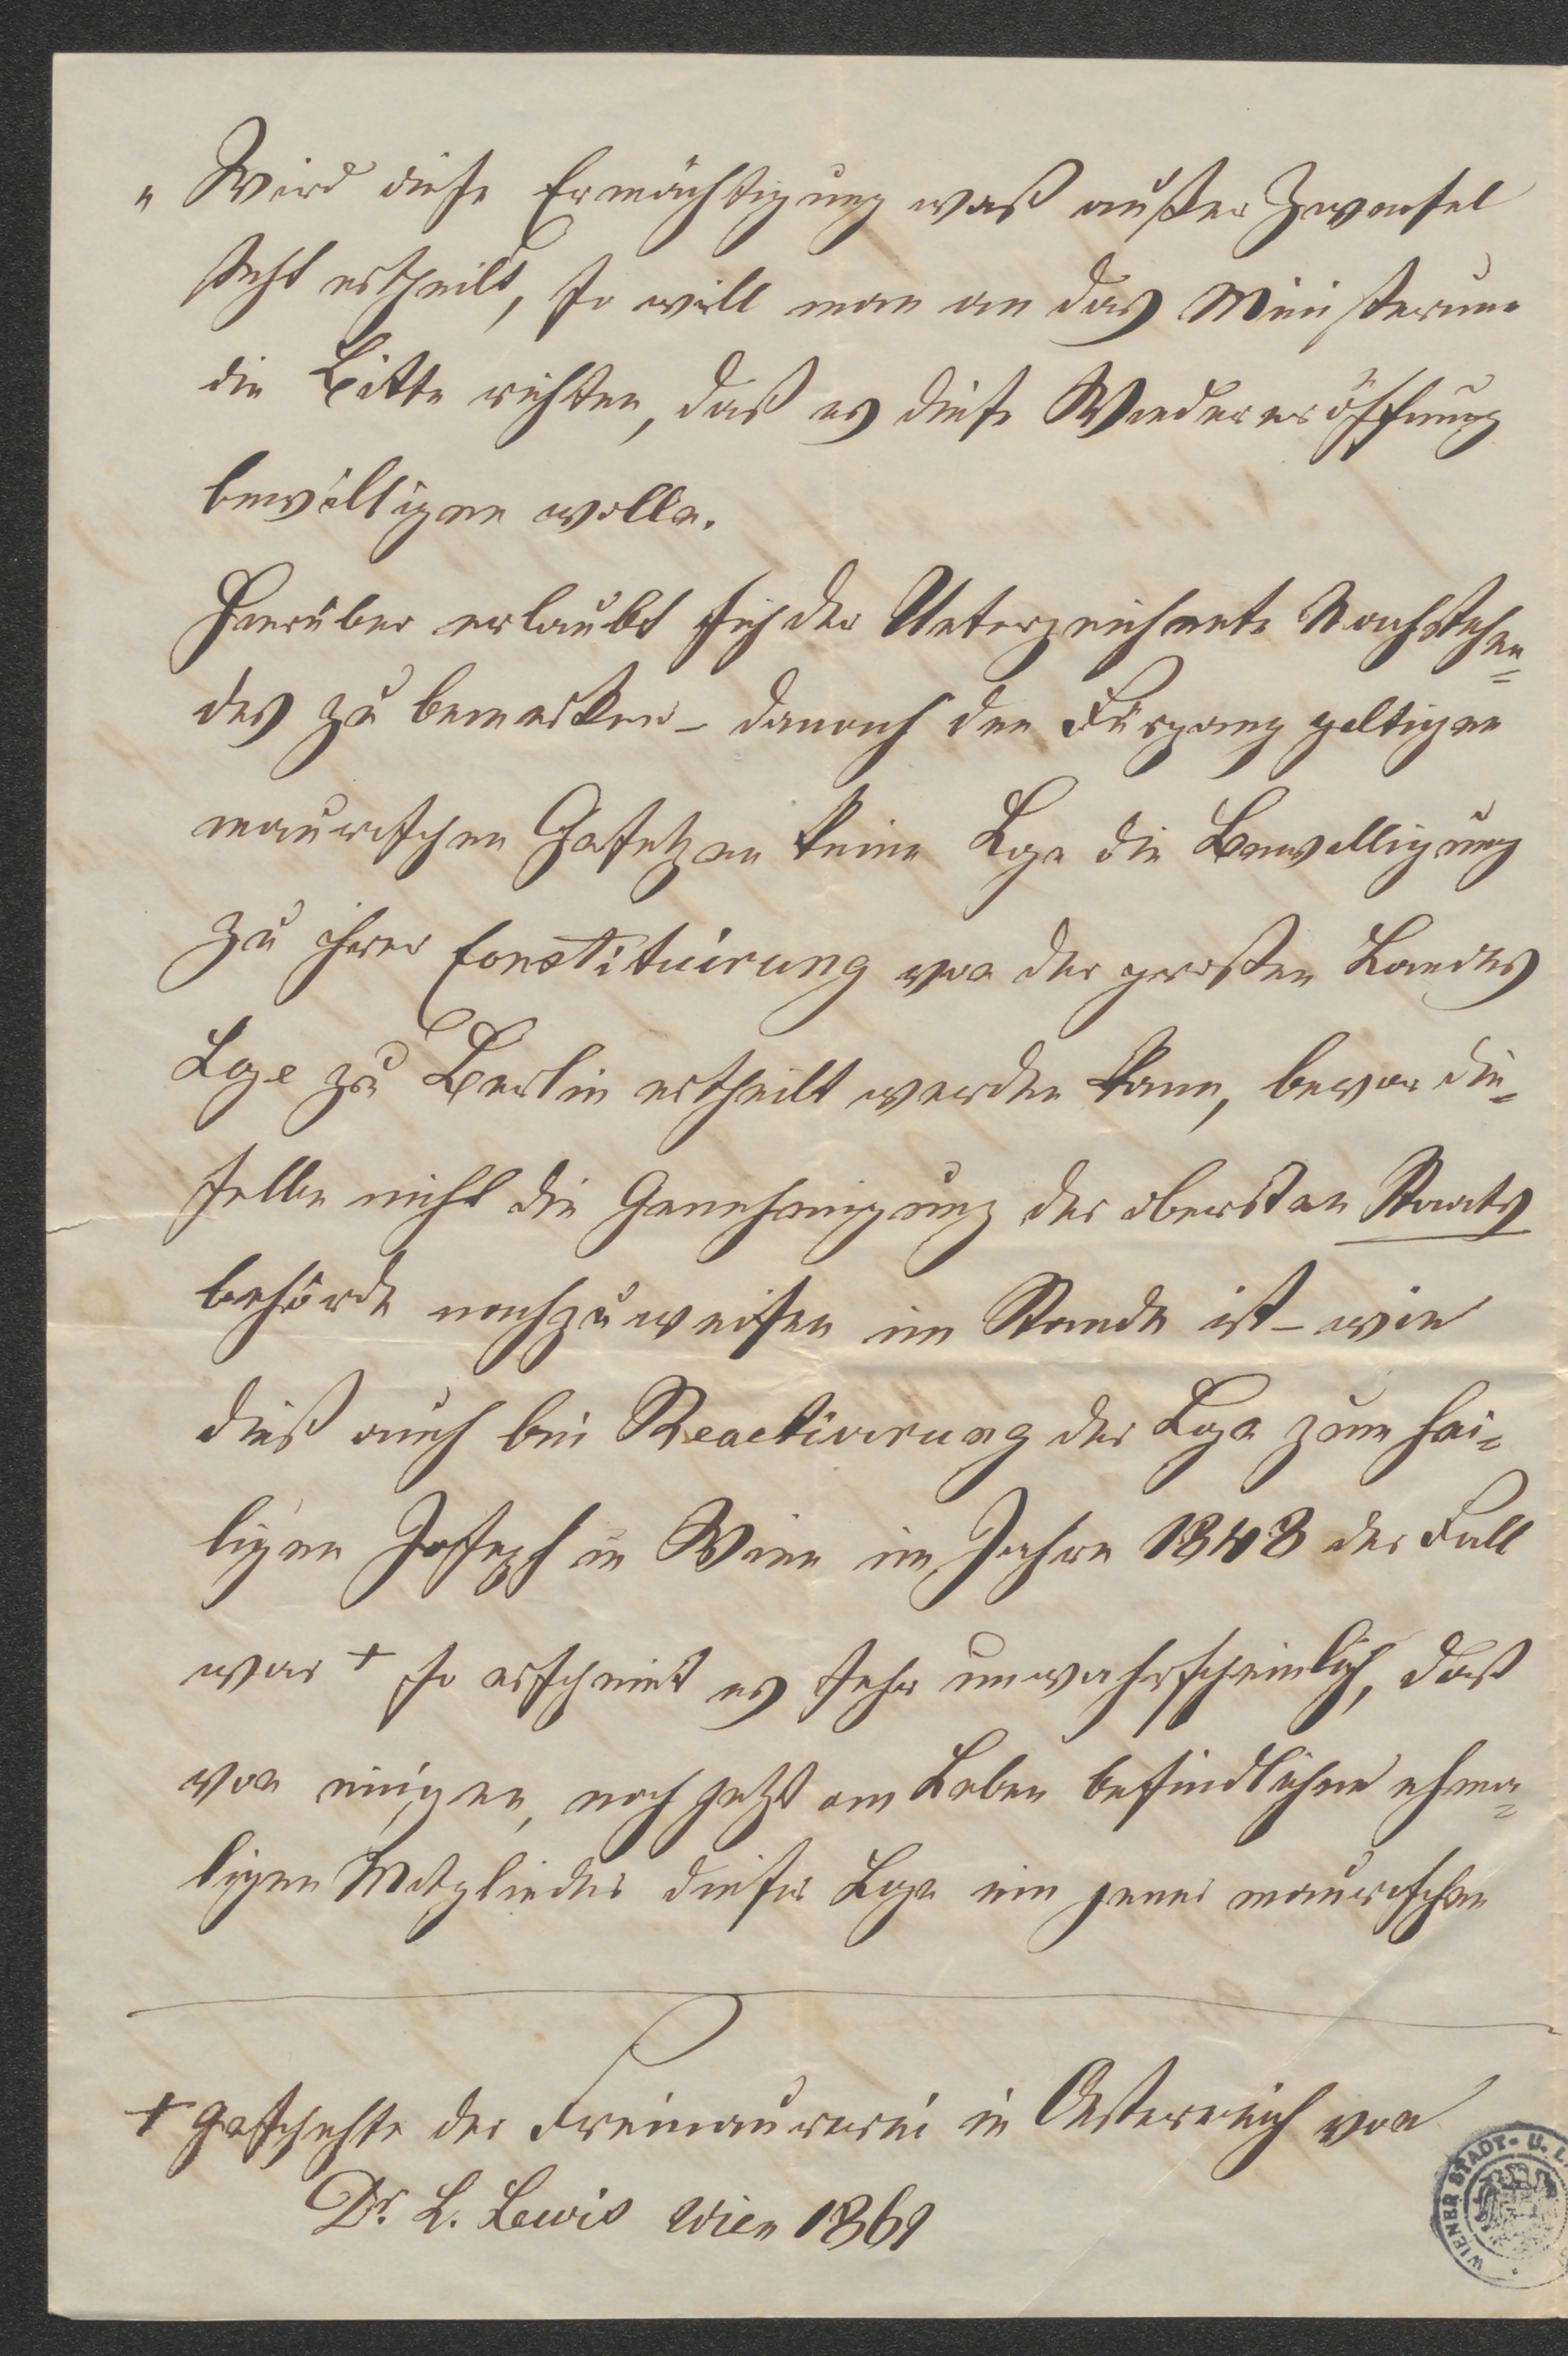 „ Wird diese Ermächtigung was außer Zweifel
steht ertheilt, so will man an das Ministerium
die Bitte richten, daß es diese Wiedereröffnung
bewilligen wolle.
Hierüber erlaubt sich der Unterzeichnete Nachstehen=
des zu bemerken – danach den gültigen
maurischen Gesetzen keine Loge die Bewilligung
zu ihrer Constituirung von der großen Landes
Loge zu Berlin ertheilt werden kann, bevor die=
selbe nicht die Genehmigung der obersten Staats
behörde nachzuweisen im Stande ist – wie
dieß auch bei Reactivirung der Loge zum hei=
ligen Joseph in Wien im Jahre 1848 der Fall
war + so erscheint es sehr unwahrscheinlich, daß
von einigen, noch jetzt am Leben befindlichen ehma=
ligen Mitglieder dieser Loge ein jener maurischen
+ Geschichte der Freimaurerei in Oesterreich von
Dr. L. Lewis Wien 1861
WIENER STADT- U. L